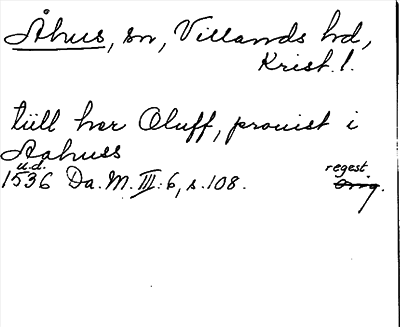 Åhus, sn, Villands hd,
Krist. l.
tiill her Oluff, prouist i
Aahuss
u.d.
1536 Da. M. III: 6, s. 108.
regest
orig.